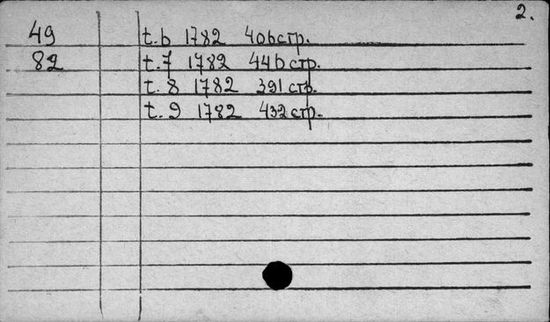 2.
49 t.6 1782 406стр.
82 t.7 1782 446стр.
t.8 1782 391стр.
t.9 1782 432стр.